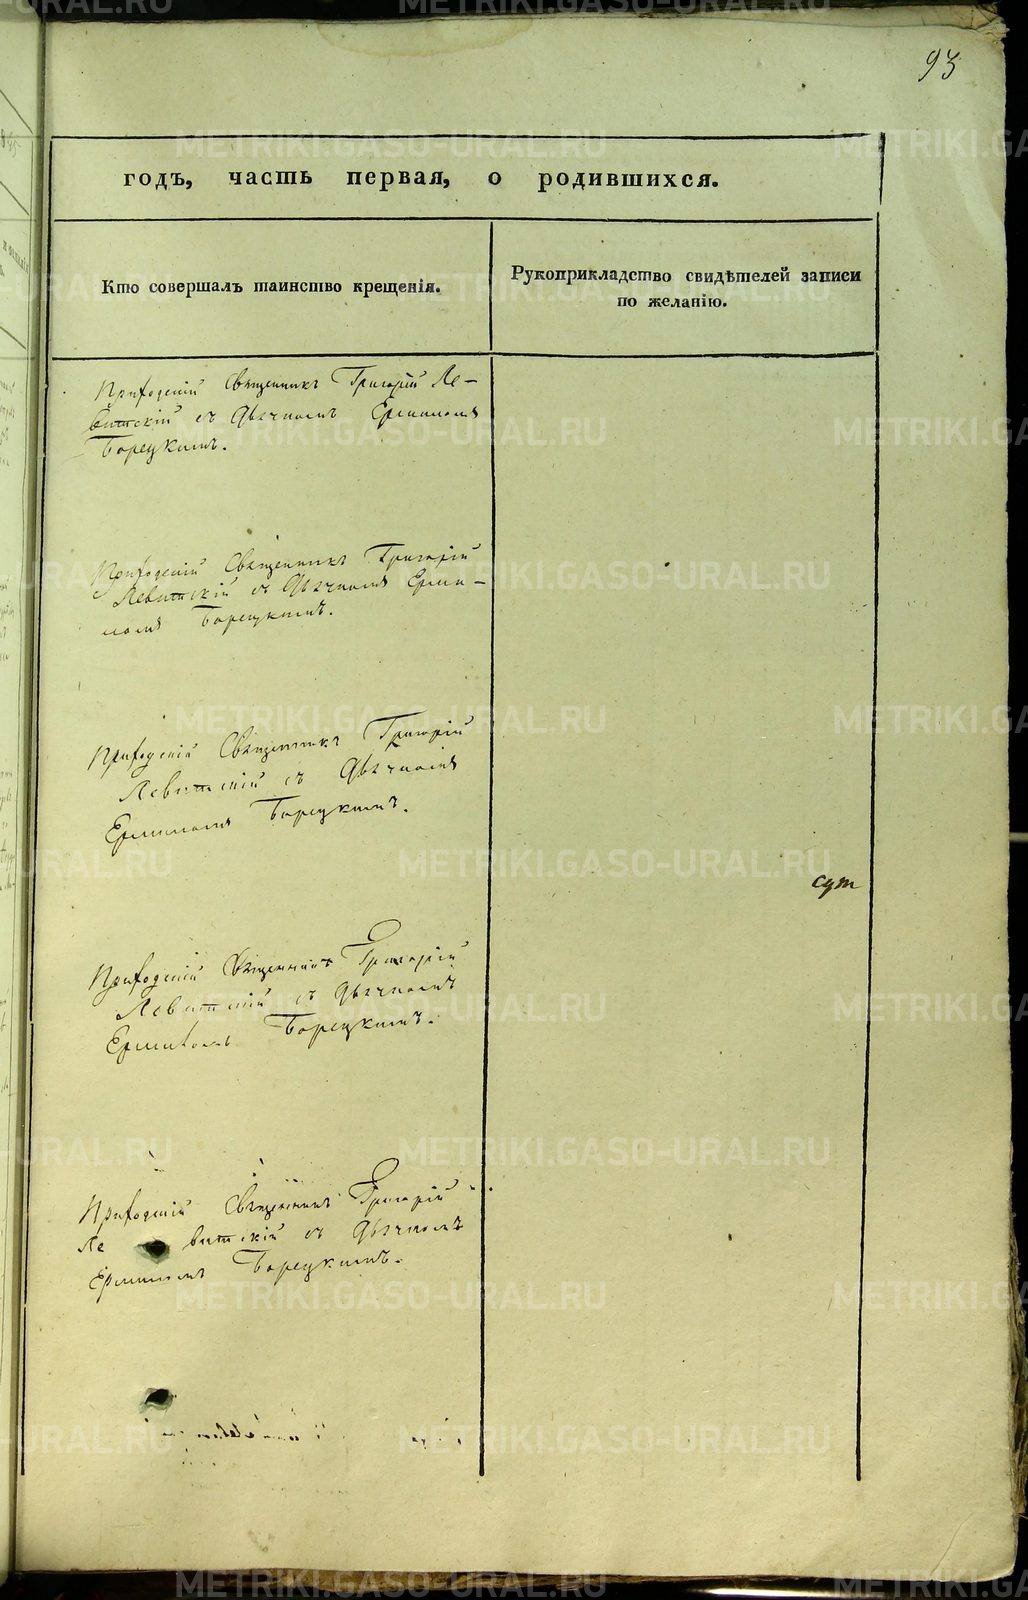 93
годъ, часть первая, о родившихся.
Кто совершалъ таинство крещенія.
Рукоприкладство свидѣтелей записи
по желанію.
Приходскій Священникъ Григорій Ле-
витскій съ Дьячкомъ
Борецкимъ.
Приходскій Священникъ Григорій
Левитскій съ Дьячкомъ
Борецкимъ.
Приходскій Священникъ Григорій
Левитскій съ Дьячкомъ
Борецкимъ.
сут
Приходскій Священникъ Григорій
Левитскій съ Дьячкомъ
Борецкимъ.
Приходскій Священникъ Григорій
Ле витскій съ Дьячкомъ
Борецкимъ.
METRIKI.GASO-URAL.RU